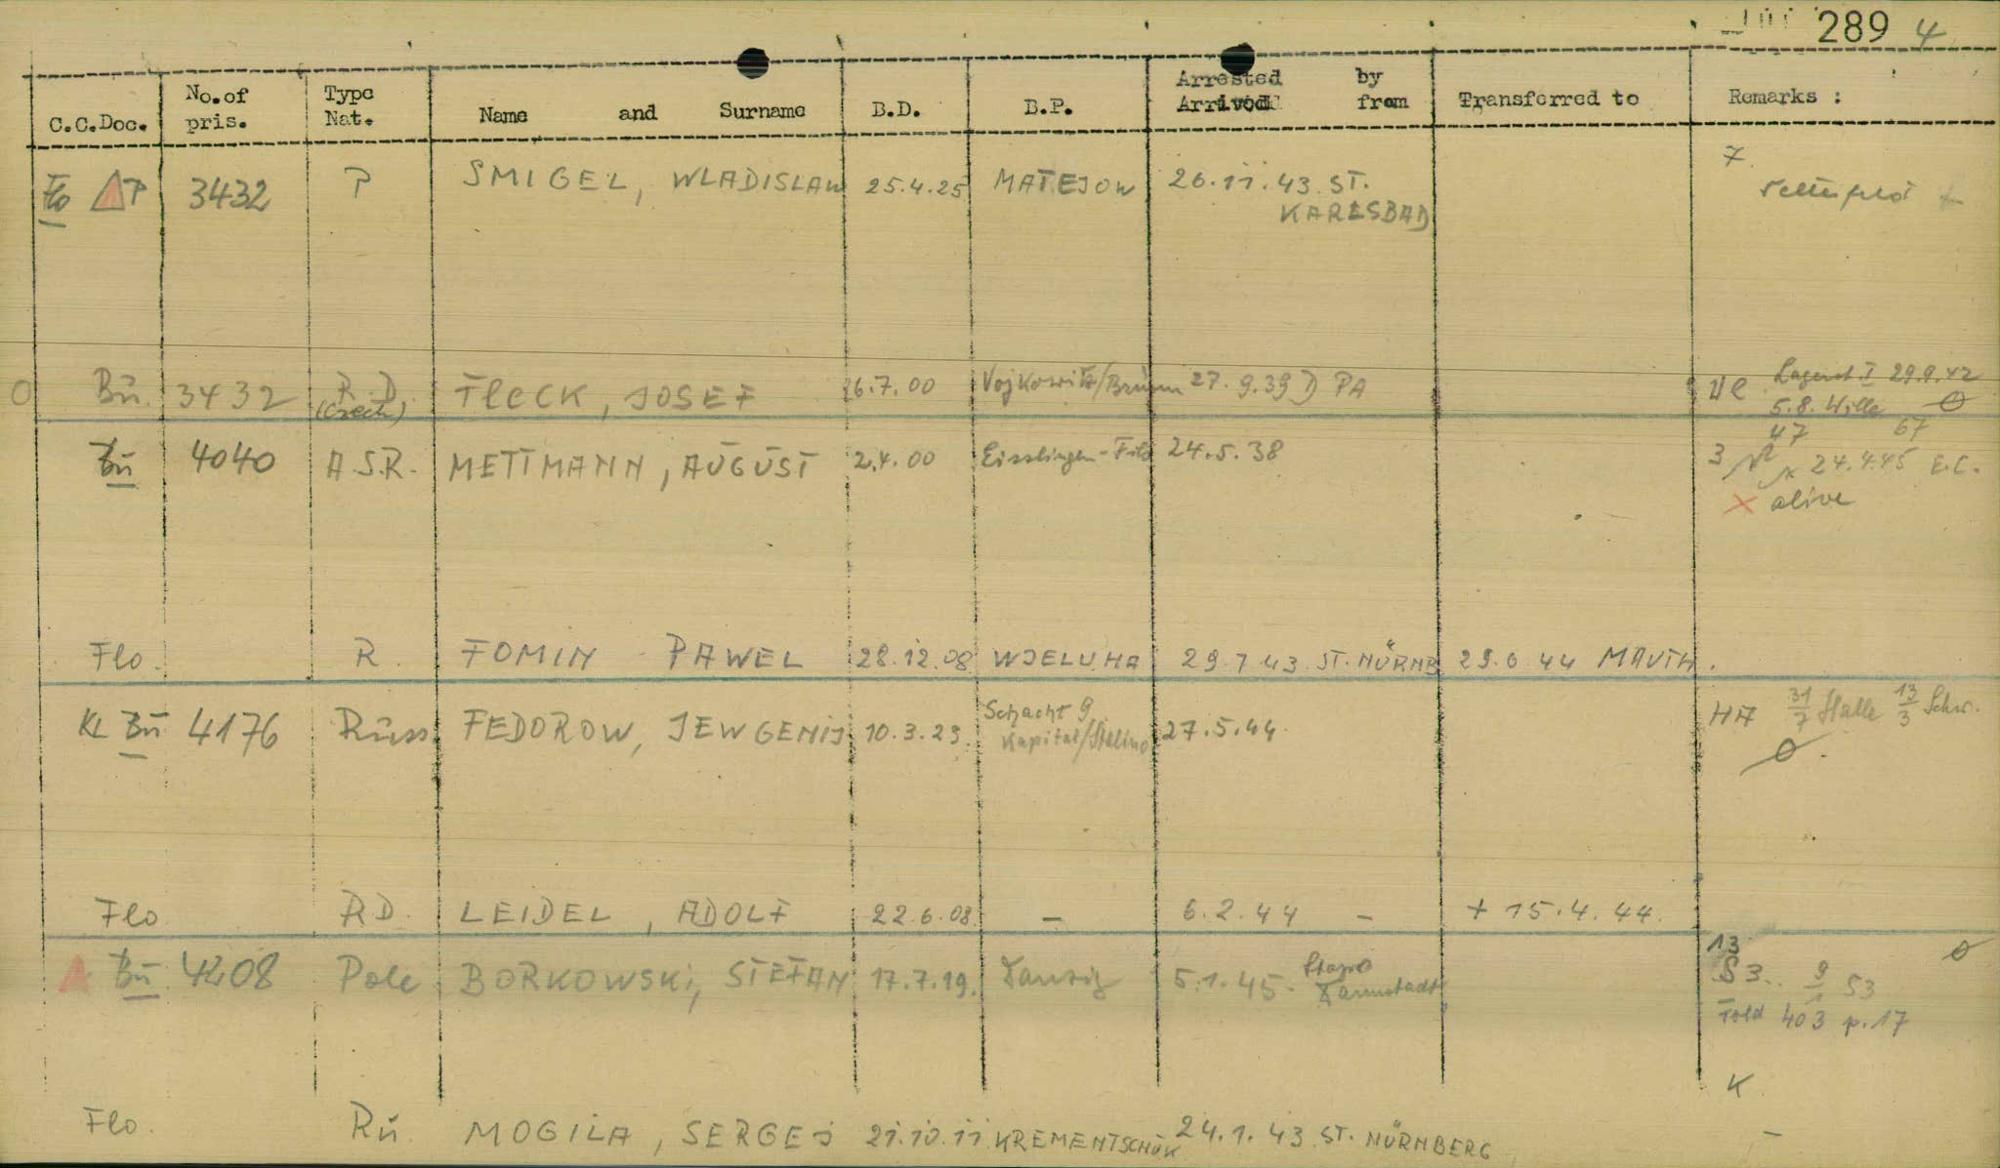 289 4
C.C.Doc. No.of pris. Type Nat. Name and Surname B.D. B.P. Arrested by Arrived from Transferred to Remarks :
7
Flo P 3432 P SMIGEL, WLADISLAW 25.4.25 MATEJOW 26.11.43 ST.
KARLSBAD
Bu. 3432 R.D. FLECK, JOSEF 26.7.00 Vojkowitz/Brünn 27.9.39 PA 29.9.42
(Czech) 5.8. Wille
47 67
Bu 4040 A.S.R. METTMANN, AUGUST 2.4.00 Eisslingen-Fils 24.5.38 3 24.4.45 E.C.
x alive
Flo. R. FOMIN PAWEL 28.12.08 WJELUHA 29.7.43 ST. NÜRNB 29.6.44 MAUTH.
KL Bu 4176 Russ FEDOROW, JEWGENIJ 10.3.23. Schacht 9 27.5.44 HA 31/7 Halle 13/3 Schw.
Kapital/Stalino
Flo RD. LEIDEL, ADOLF 22.6.08 – 6.2.44 – + 15.4.44.
13
Bu 4208 Pole BORKOWSKi, STEFAN 17.7.19. Danzig 5.1.45. Stapo S3. 9 53
Darmstadt
Fold 403 p.17
K
Flo. Ru. MOGILA, SERGEJ 21.10.11 KREMENTSCHUK 24.1.43 ST. NÜRNBERG –